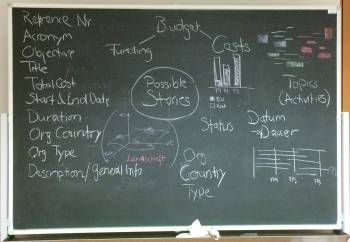 Reference Nr
Acronym
Objective
Title
Total Cost
Start & End Date
Duration
Org Country
Org Type
Description/general Info
Budget
Funding
Costs
EU
Possible
Stories
Landschaft
Status
Org
Country
Type
Topics
(Activities)
Datum
→Dauer